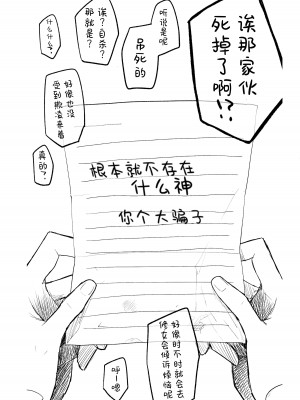 诶那家伙
死掉了啊!?
听说是呢
吊死的
诶?自杀?
那就是?
什么什么?
好像也没
受到欺凌来着
真的?
根本就不存在
什么神
你个大骗子
好像时不时就会去
修女会倾诉烦恼呢
呼—嗯